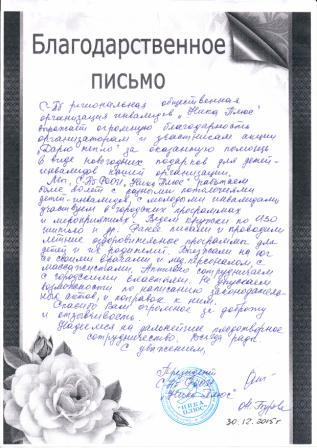 Благодарственное
письмо
С-Пб региональная общественная
организация инвалидов "Ника Плюс"
выражает огромную благодарность
организаторам и участникам акции
"Дарю тепло" за оказанную помощь
в виде новогодних подарков для детей-
инвалидов нашей организации.
Мы, С-Пб РООИ "Ника Плюс" работаем
более лет с
детей-инвалидов, с молодыми инвалидами
участвуем в городских программах
и мероприятиях. Ведем кружки по ИЗО
и др. Ранее и проводили
летние оздоровительные программы для
детей и их родителей. Выезжали на юг
со своими врачами и медперсоналом с
массажистами. Активно сотрудничаем
с городскими властями. Не упускаем
возможности по написанию законодатель-
ных актов, и поправок к ним.
Спасибо Вам огромное за доброту
и отзывчивость.
Надеемся на дальнейшее плодотворное
сотрудничество. Всегда рады.
С уважением,
Президент
С-Пб РООИ
"Ника Плюс"
"НИКА
ПЛЮС"
30.12.2015г